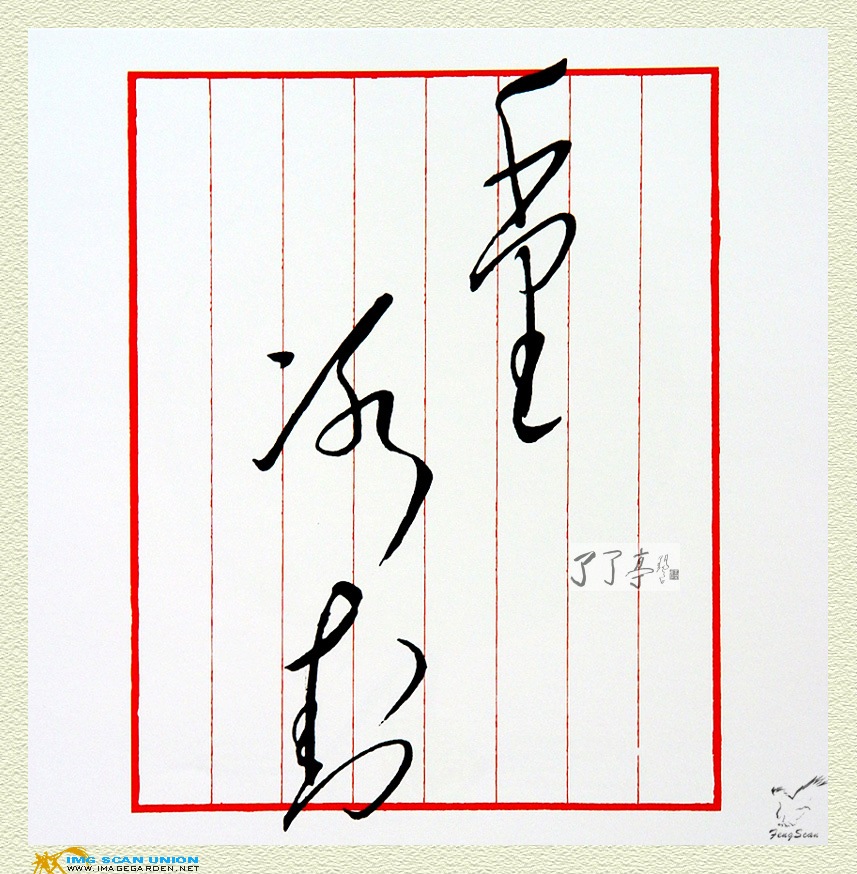 千里
冰封
了了亭
FengScan
IMG SCAN UNION
WWW.IMAGEGARDEN.NET